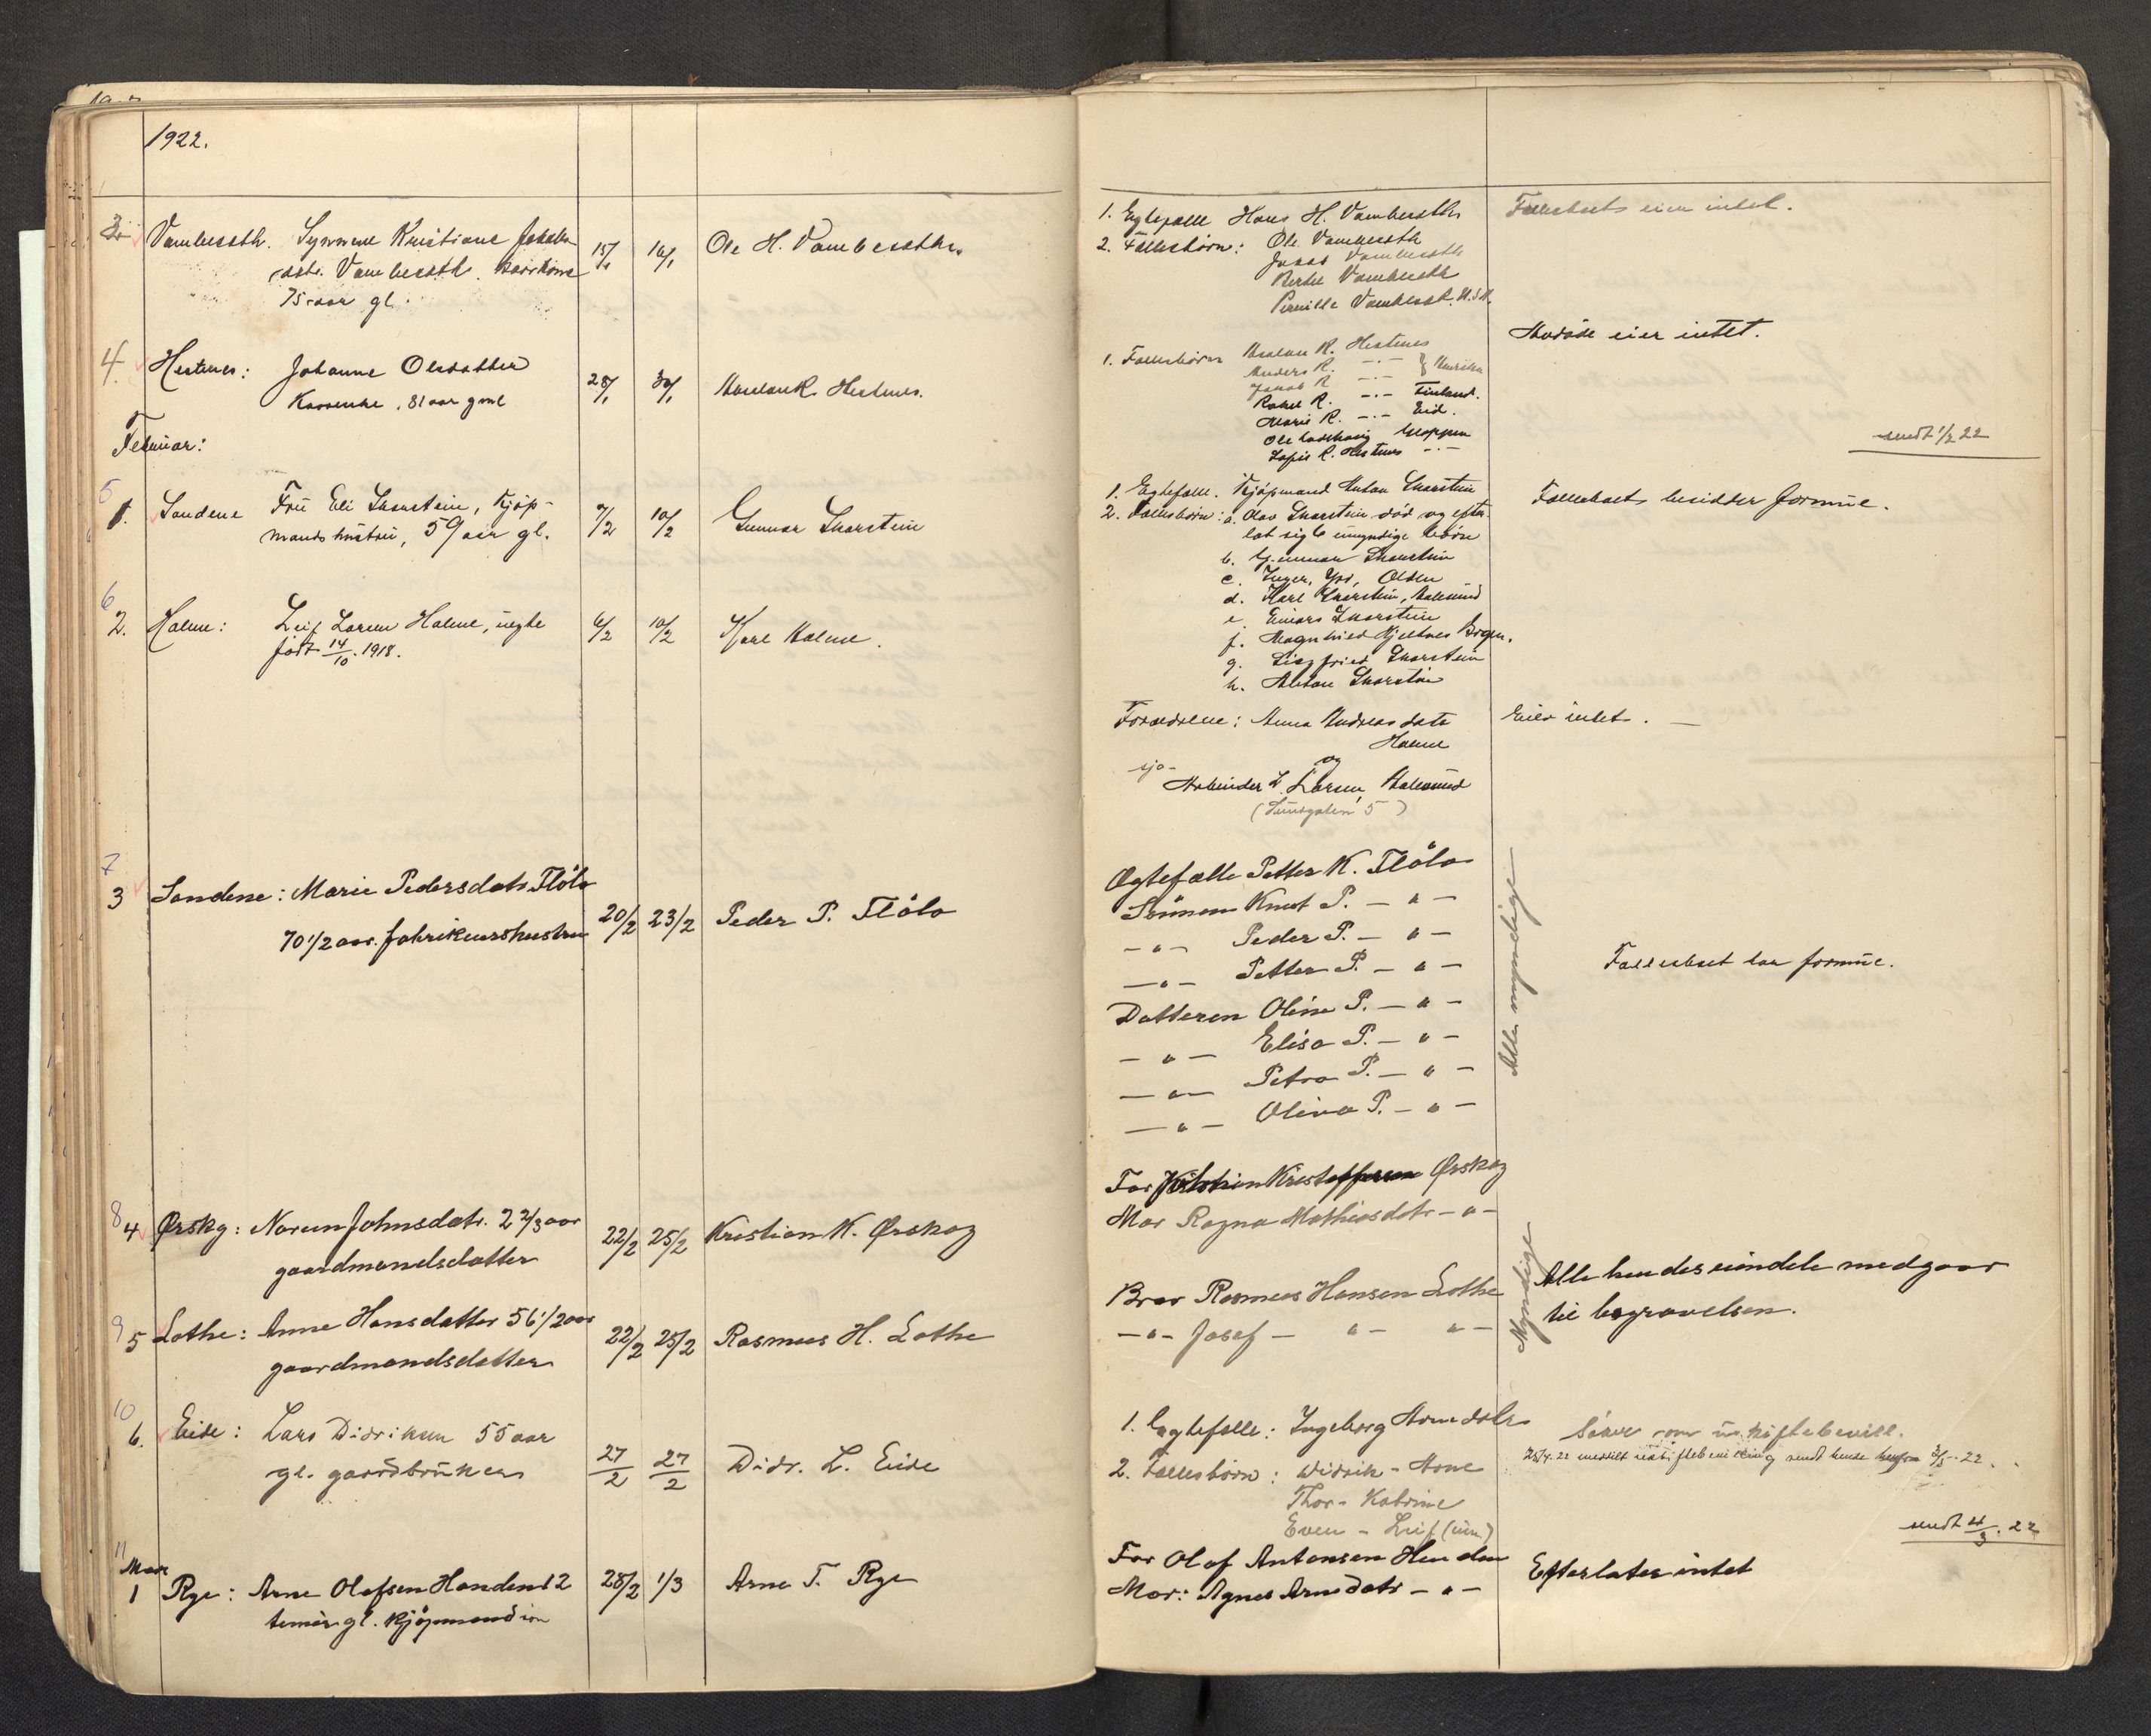 1922.
3. Vambeseth. Synneve Kristiane Jakobs-
datr. Vambeseth. kaarkone
75 aar gl.
15/1 16/1 Ole H. Vambeseth.
1. Egtefælle Hans H. Vambeseth
2. Fællesbørn: Ole Vambeseth
Jakob Vambeseth
Berthe Vambeseth
Pernille Vambeseth. U.S.A.
Fællesboets eier intet.
4. Hestenes: Johanne Olesdatter
Kaarenke, 81 aar gml
28/1 30/1 R. Hestenes.
1. Fællesbørn R. Hestenes
Anders R. -"- } Amerika
Jakob R. -"-
Rakel R. -"- Finland.
Marie R. -"- Eid.
Ole Gloppen
Sofie R. Hestenes -"-
Avdøde eier intet.
sendt 1/2 22
Februar:
5 1. Sandene Fru Eli Skarstein, Kjøp-
mands hustru, 59 aar gl.
7/2 10/2 Gunnar Skarstein
1. Egtefælle. Kjøpmand Anton Skarstein
2. Fællesbørn: a. Olav Skarstein død og efter-
lot sig 6 umyndige børn
b. Gunnar Skarstein
c. Inger, Olden
d. Karl Skarstein, Aalesund
e. Einar Skarstein
f. Magnhild Hjeltnes Bergen.
g. Sigfried Skarstein
h. Anton Skarstein
Fællesboets besidder formue.
6 2. Holme: Leif Larsen Holme, uegte
født 14/10. 1918.
6/2 10/2 Karl Holme.
Forældrene: Anna Andreasdatr
Holme
og
sjø-
Arbeider L. Larsen, Aalesund
(Sundgaten 5)
Eier intet. —
7 3 Sandene: Marie Pedersdatr. Fløto
70 1/2 aar. fabrikeiershustru
20/2 23/2 Peder P. Fløto
Ægtefælle Petter K. Fløto
Sønnen Knut P. — " —
— " — Peder P. — " —
— " — Petter P. — " —
Datteren Oline P. — " —
— " — Elisa P. — " —
— " — Petra P. — " —
— " — Oliva P. — " —
Alle myndige
Fællesboet har formue.
8 4 Ørskog: Noreen Johnsdatr. 2 2/3 aar
gaardmandsdatter
22/2 25/2 Kristian K. Ørskog
Far Kristian Kristoffersen Ørskog
Mor Ragna Mathiasdatr — " —
9 5 Lothe: Anne Hansdatter 56 1/2 aar
gaardmandsdatter
22/2 25/2 Rasmus H. Lothe
Bror Rasmus Hansen Lothe
— " — Josef — " — " —
Myndige
Alle hendes eiendele medgaar
til begravelsen.
10 6. Eide: Lars Didriksen 55 aar
gl. gaardbruker
27/2 27/2 Didr. L. Eide
1. Egtefelle: Ingeborg Arnedatr
2. Fællesbørn: Didrik - Arne
Thor - Katrine
Even - Leif (um.)
Søker om uskiftebevill.
25/4. 22 meddelt uskiftebevilling sendt hende 3/5. 22.
sendt 4/3. 22
11 Mars
1 Rye: Arne Olafsen Henden 12
timer gl. kjøpmandssøn
28/2 1/3 Arne T. Rye
Far Olaf Antonsen Henden
Mor: Agnes Arnedatr — " —
Efterlater intet